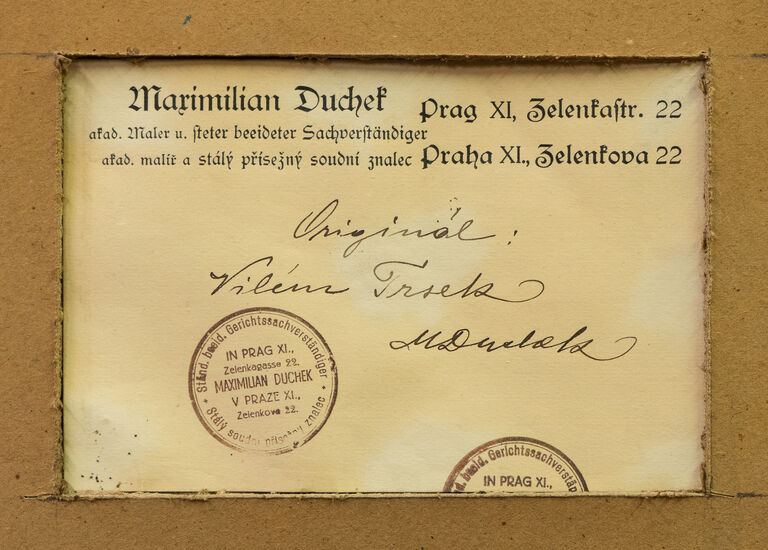 Maximilian Duchek
Prag XI, Zelenkastr. 22
akad. Maler u. steter beeideter Sachverständiger
akad. malíř a stálý přísežný soudní znalec
Praha XI., Zelenkova 22
Originál:
Vilém Trsek
MDuchek
Ständ. beeid. Gerichtssachverständiger
IN PRAG XI.,
Zelenkagasse 22.
MAXIMILIAN DUCHEK
V PRAZE XI.,
Zelenkova 22.
Stálý soudní přísežný znalec
beeid. Gerichtssachverständ
IN PRAG XI.,